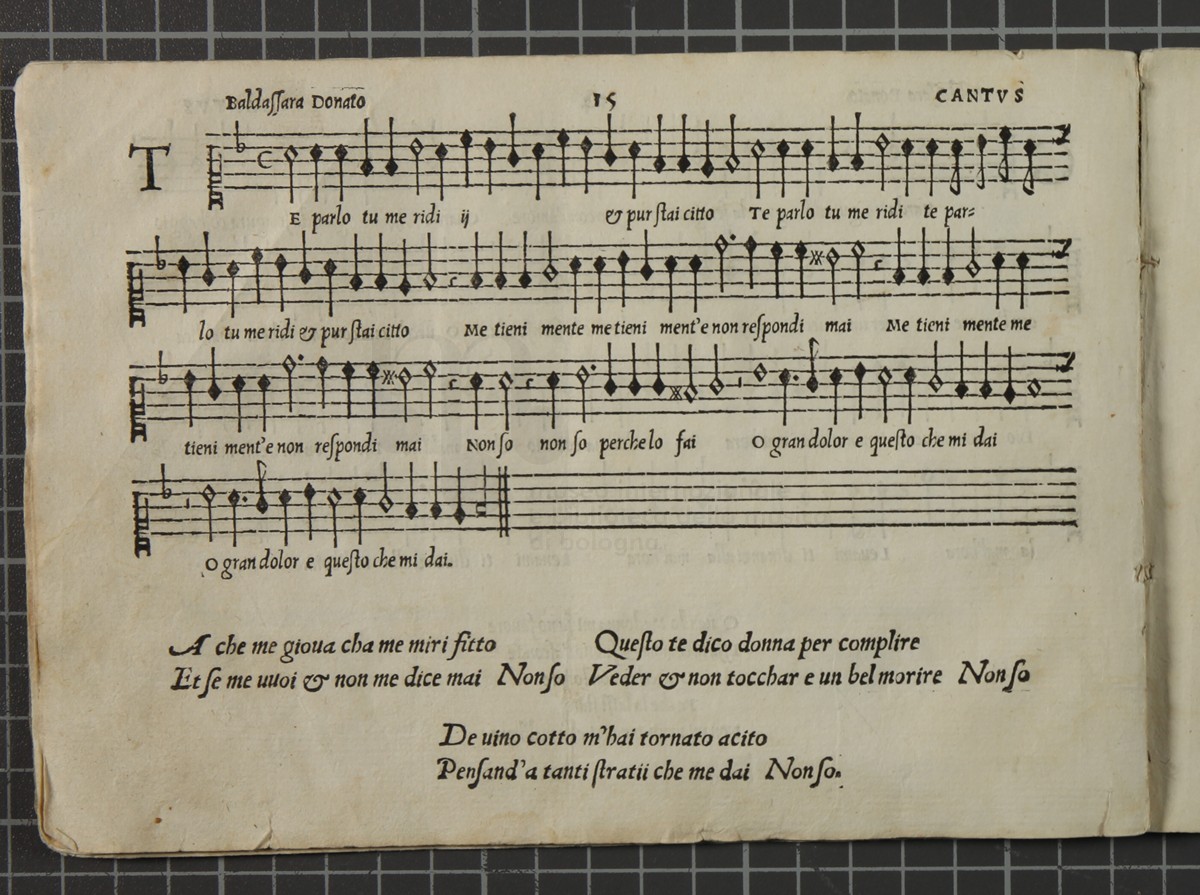 Baldaſſara Donato 15 CANTVS
TE parlo tu me ridi ij & pur ſtai citto Te parlo tu me ridi te par=
lo tu me ridi & pur ſtai citto Me tieni mente me tieni ment'e non reſpondi mai Me tieni mente me
tieni ment'e non reſpondi mai Non ſo non ſo perche lo fai O gran dolor e queſto che mi dai
O gran dolor e queſto che mi dai.
A che me gioua cha me miri fitto
Et ſe me uuoi & non me dice mai Non ſo
Queſto te dico donna per complire
Veder & non tocchar e un bel morire Non ſo
De uino cotto m'hai tornato acito
Penſand'a tanti ſtratii che me dai Non ſo.
di bologna